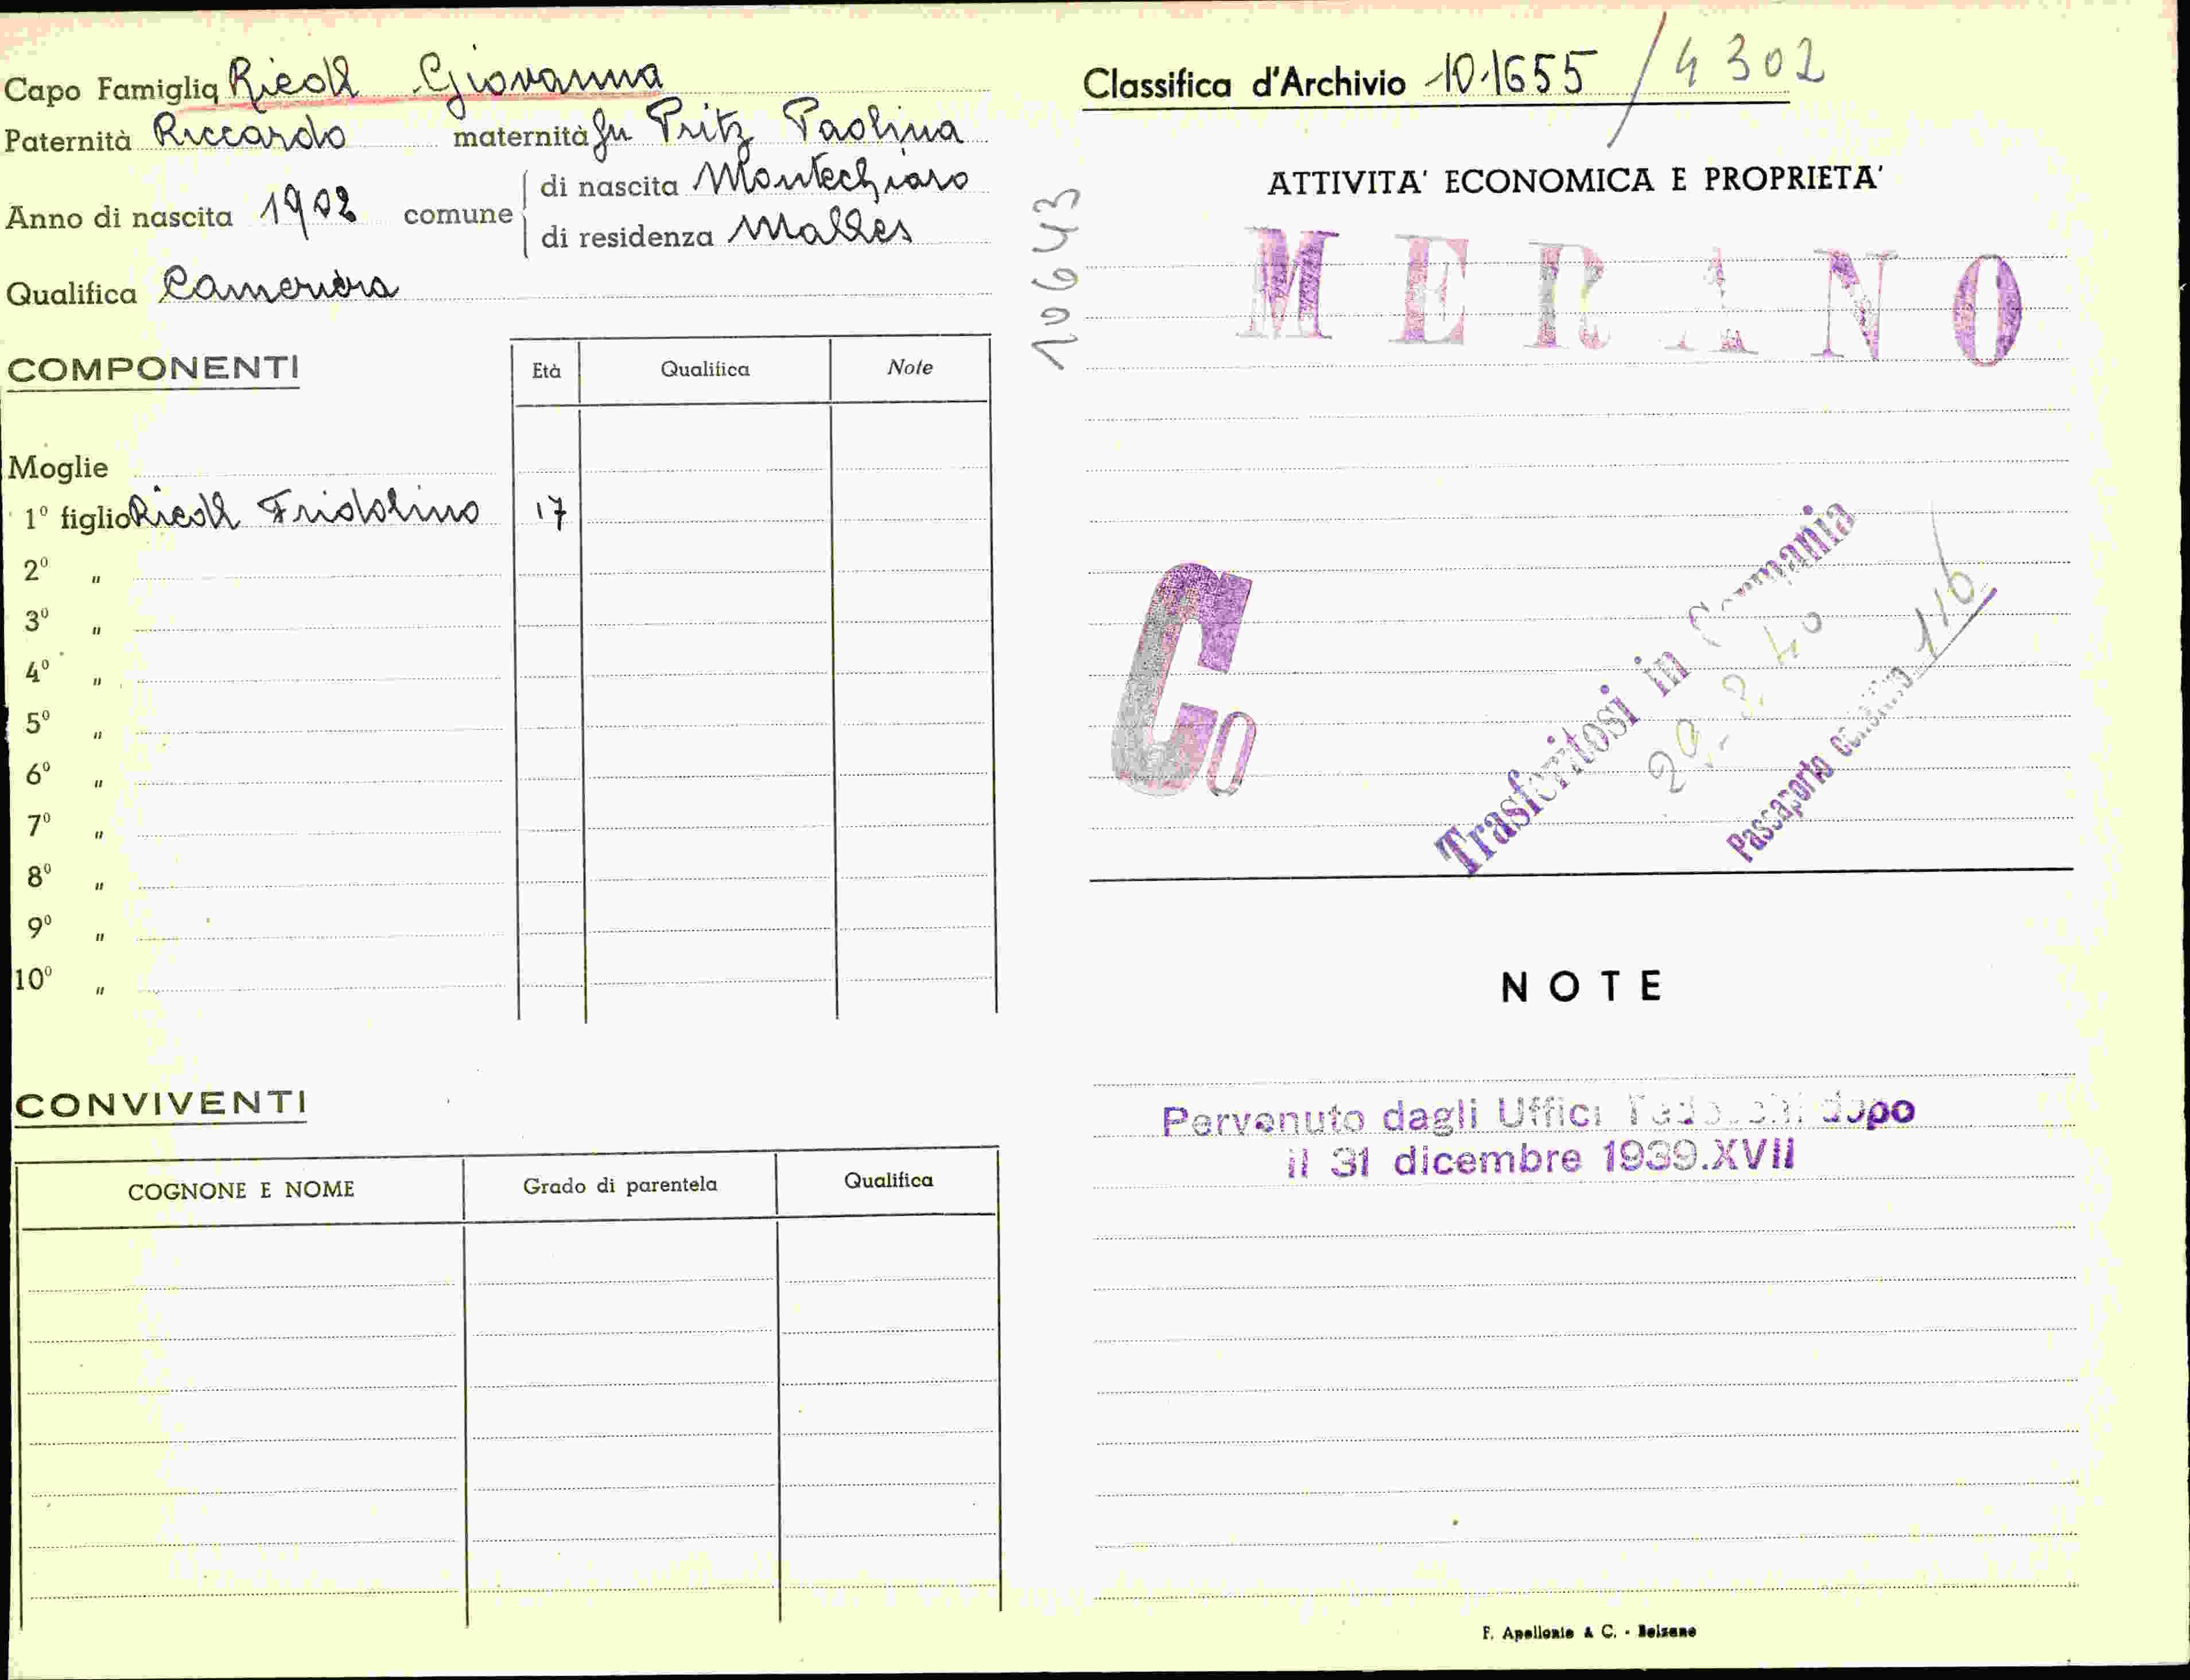 Capo Famiglia Riedl Giovanna
Paternità Riccardo maternità fu Pritz Paolina
Anno di nascita 1902 comune di nascita Montechiaro
di residenza Malles
Qualifica Cameriera
COMPONENTI
Età Qualifica Note
Moglie
1º figlio Riedl Fridolino 17
2º "
3º "
4º "
5º "
6º "
7º "
8º "
9º "
10º "
CONVIVENTI
COGNONE E NOME Grado di parentela Qualifica
Classifica d'Archivio 10.1655 / 4302
10643
ATTIVITA' ECONOMICA E PROPRIETA'
MERANO
Co
Trasferitosi in Germania
Passaporto
NOTE
Pervenuto dagli Uffici Tedeschi dopo
il 31 dicembre 1939.XVII
F. Apollonio & C. - Bolzano